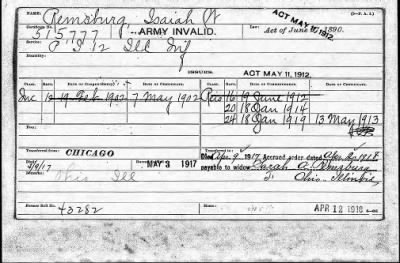 Remsburg, Isaiah W
Certificate No. 515,777 ARMY INVALID. Act of June 1890.
ACT MAY 11, 1912.
Service, 12 Ill Inf
ISSUES. ACT MAY 11, 1912.
CLASS. RATE. DATE OF COMMENCEMENT. DATE OF CERTIFICATE. CLASS. RATE. DATE OF COMMENCEMENT. DATE OF CERTIFICATE.
Inc 12 19 Feb 1902 7 May 1902 Reis 16 19 June 1912
20 18 Jan 1914
24 18 Jan 1919 13 May 1913
Fee:
Transferred from CHICAGO Transferred from
MAY 3 1917 Died Apr. 9, 1917 accrued order dated
payable to widow Sarah A. Remsburg
Ohio Ill
Ohio Illinois
Home Roll No. 43282 APR 12 1918